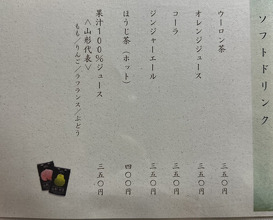 ソフトドリンク
ウーロン茶 三五〇円
オレンジジュース 三五〇円
コーラ 三五〇円
ジンジャーエール 三五〇円
ほうじ茶（ホット） 四〇〇円
果汁100％ジュース 三五〇円
＜山形代表＞
もも／りんご／ラフランス／ぶどう